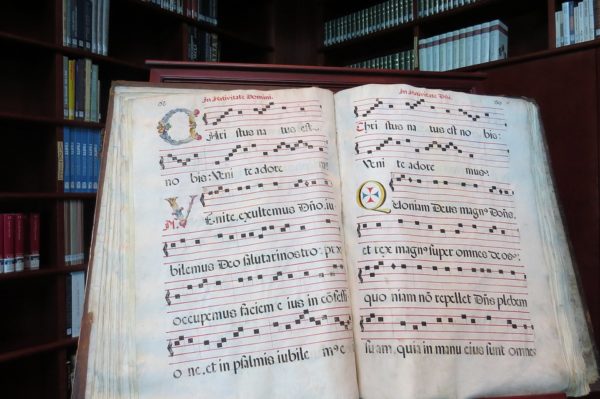 In Nativitate Domini.
CHri stus na tus est
no bis: Veni te adore mus.
VEnite, exultemus Dño, iu
bilemus Deo salutari nostro: præ
occupemus faciem e ius in cõfessi
o ne, et in psalmis iubile mꝰ e
In Nativitate Dñi.
Chri stus na tus est no bis:
Veni te adore mus.
QUoniam Deus magnꝰ Doñs.
et rex magnꝰ super omnes deos:
quo niam nõ repellet Dñs plebem
suam, quia in manu eius sunt omnes